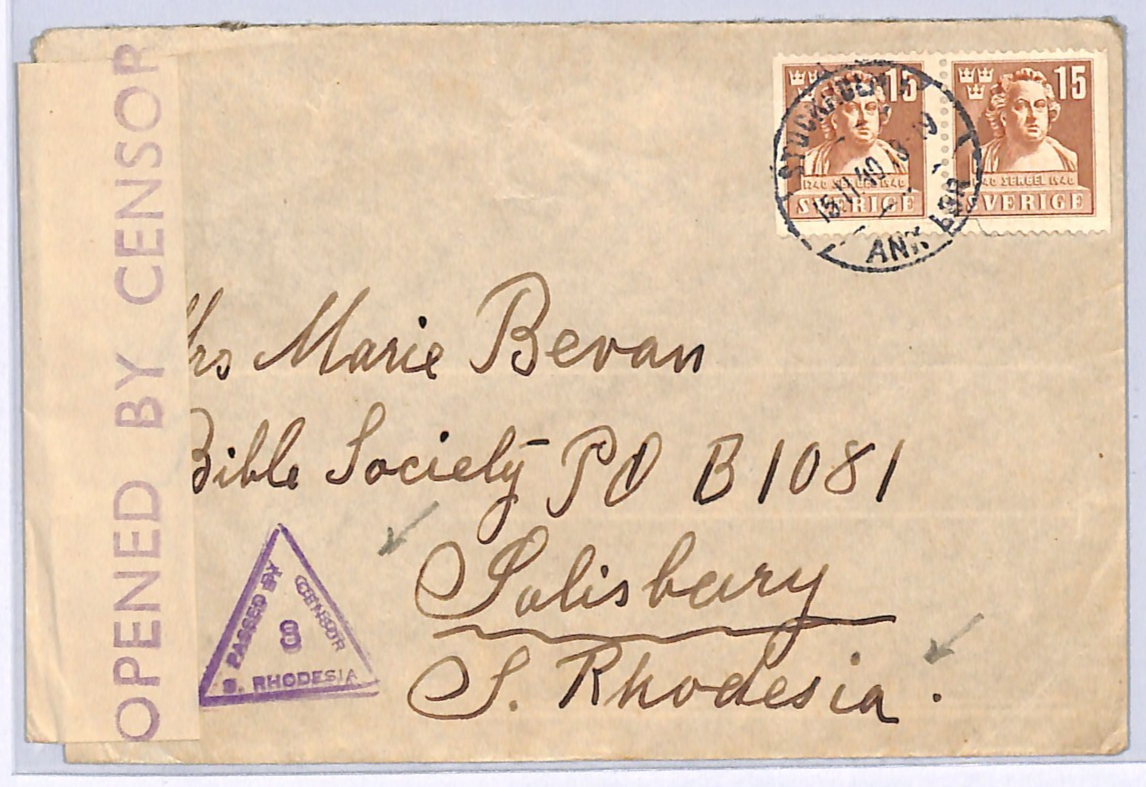 OPENED BY CENSOR
15
15
1740 SERGEL 1940
SVERIGE
SVERIGE
STOCKHOLM
15.11.40
ANK
Mrs Marie Bevan
Bible Society PO B 1081
Salisbury
S. Rhodesia.
PASSED BY CENSOR
8
S. RHODESIA